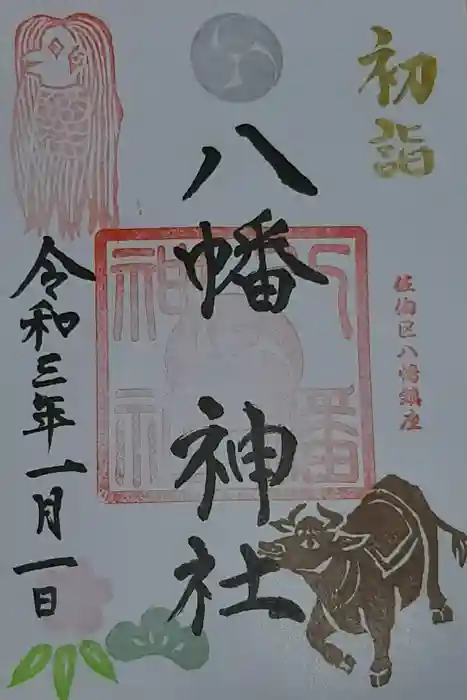 初詣
佐伯区八幡鎮座
八幡神社
八幡神社
令和三年一月一日